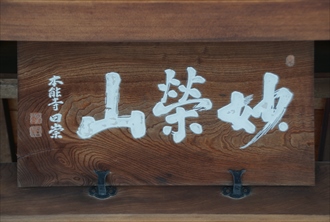 妙榮山
本能寺日崇